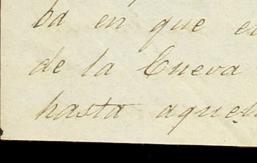 ba en que e
de la Cueva
hasta aquel